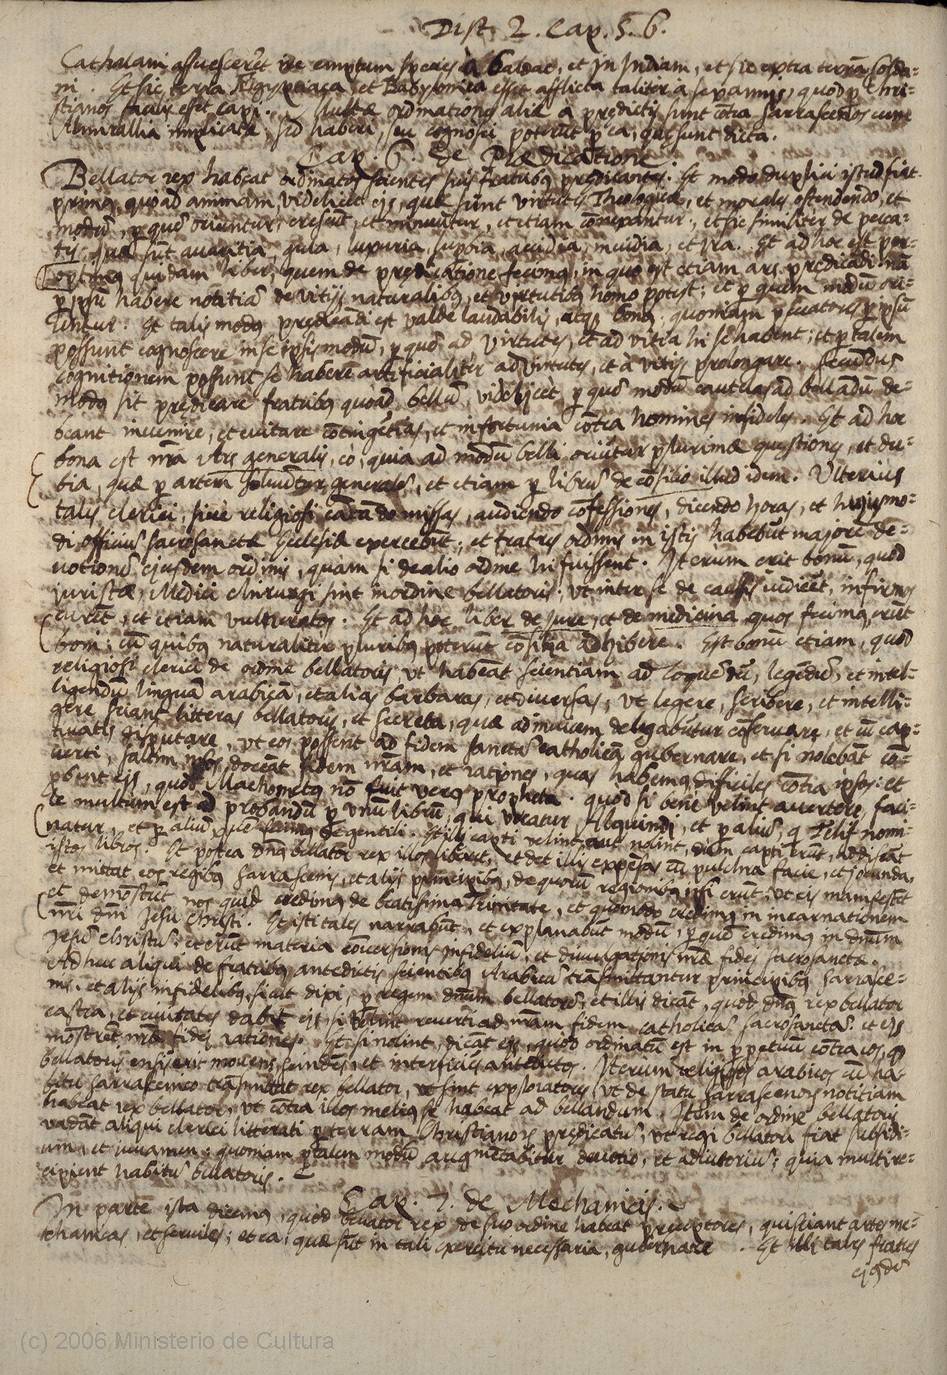 Dist. 2. Cap. 5. 6.
Cathalani assuescerẽt ire emptum species à Baldac, et in Indiam, et sic extra terrã Solda-
ni. Et sic terra Ægyptiaca, et Babylonica esset afflicta taliter à sexannis, quod p Chri-
stianos facilis esset capi. Multæ ordinationes aliæ à predictis sunt cõtra Sarracenos cum
Almirallia implicatæ, sed haberi, seu cognosci poterũt p ea, quæ sunt dicta.
Cap. 6. de Prædicatione.
Bellator rex habeat ordinatos scientes suis fratribq predicantes. Et modo duplici istud fiat.
primo, quoad animam, videlicet eis, quæ sunt virtutes Theologicæ, et morales ostendendo, et
modũ, p quẽ oriuntur, crescũt, et minuũtur, et etiam corrũpantur, et sic similiter de pecca-
tis, quæ sũt auaritia, gula, luxuria, supbia, accidia, inuidia, et ira. Et ad hoc est per-
optimq quidam liber, quem de predicatione fecimq, in quo est etiam ars predicãdi mã
p ipsũ habere notitiã de vitijs naturalibq, et virtutibq homo potest; et p quem modũ ori-
untur. Et talis modq predicãdi est valde laudabilis, atq bonq. quoniam peccatores p ipsũ
possunt cognoscere in se ipsis modũ, p quẽ ad virtutes, et ad vitia hi se habent; et p talem
cognitionem possunt se habere artificialiter ad virtutes, et à vitijs prolongare. Secundus
modq sit predicare fratribq quoad bellũ, videlicet, p quẽ modũ cautius ad bellãdũ de-
beant inuenire, et euitare cõtingẽtias, et infortunia cõtra homines infideles. Et ad hoc
bona est nrã Ars generalis, eo, quia ad modũ belli oriũtur plurimæ questiones, et du-
bia, quæ p artem soluũtur generale, et etiam p librũ de cõsilio illud idem. Vlterius
tales clerici, siue religiosi cãtãdo missas, audiendo cõfessiones, dicendo horas, et huiusmo-
di officiũ sacrosanctæ Ecclesiæ exercebũt, et fratres ordinis in istis habebũt majorẽ de-
uotionẽ eiusdem ordinis, quam si de alio ordine hi fuissent. Iterum erit bonũ, quod
juristæ, Medici chirurgi sint in ordine bellatoris, vt inter se de causis iudicẽt, infirmos
curẽt, et etiam vulneratos. Et ad hoc liber de Jure, et de medicina, quos fecimq, erũt
boni; cũ quibq naturaliter pluribq poterũt cõsilia adhibere. Est bonũ etiam, quod
religiosi clerici de ordine bellatoris, vt habeãt scientiam ad loquẽdũ, legẽdũ, et intel-
ligendũ linguã arabicã, et alias barbaras, et diuersas, vt legere, scribere, et intelli-
gere sciant litteras bellatoris, et secreta, quæ adinuicem delegabũtur cõseruare, et cũ cap-
tiuatis disputare, vt eos possent ad fidem sanctã catholicã gubernare, et si nolebãt cõ-
uerti, saltim eos doceãt fidem nrãm, et rationes, quas habemq difficiles cõtra ipsos: et
pbent eis, quod Machometq nõ fuit verq propheta. quod si bene velint auertere, faci-
le multum est ad probandũ p vnũ librũ, qui vocatur, Alquindi, et p aliũ, q Telif nomi-
natur, et p aliũ, quẽ fecimq de gentili. Et illi capti velint, aut nolint, dum capti erũt, addiscãt
istos libros. Et postea dnq bellator rex illos liberet, et det illis expẽsas cũ pulchra facie, et jocunda,
et mittat eos regibq Sarracenis, et alijs principibq, de quorũ regionibq ipsi erũt, vt eis manifestẽt
et demõstrẽt nos quid credimq de beatissima Trinitate, et quomodo credimq in incarnationem
nrĩ dnĩ Jesu Christi. Et isti tales narrabũt, et explanabũt modũ, p quẽ credimq in dnũm
Jesũ Christũ: et erũt materia conuersionis infideliũ, et diuulgationis nrẽ fidei sacrosanctæ.
Ad hæc aliqui de fratribq antedictis scientibq Arabicũ trãsmittantur principibq Sarrace-
nis, et alijs infidelibq, sicut dixi, p regem dnũm bellatorẽ, et illis dicãt, quod dnq rex bellator
castra, et ciuitates dabit eis, si volunt reuerti ad nrãm fidem catholicã sacrosanctã. et eis
mõstrent nrẽ fidei rationes. Et si nolint, dicãt eis, quod ordinatũ est in perpetuũ cõtra eos, q
bellatoris ensis erit mouens, scindẽs, et interficiens antedictos. Iterum religiosos arabicos cũ ha-
bitu sarraceneo trãsmittat rex bellator, vt sint exploratores, vt de statu Sarracenorũ notitiam
habeat rex bellator, vt cõtra illos meliq se habeat ad bellandum. Item de ordine bellatoris
vadãt aliqui clerici litterati p terram Christianorũ predicatũ, vt regi bellatori fiat subsidi-
um, et iuuamen: quoniam p talem modũ augmẽtabitur deuotio, et adiutoriũ; quia multi re-
cipient habitũ bellatoris.
Cap. 7. de Mechanicis.
In parte ista dicimq, quod bellator rex de suo ordine habeat preceptores, qui sciant artes me-
chanicas, et seruiles; et ea, quæ sũt in tali exercitu necessaria, gubernare. Et illi tales fratres
eiusdẽ